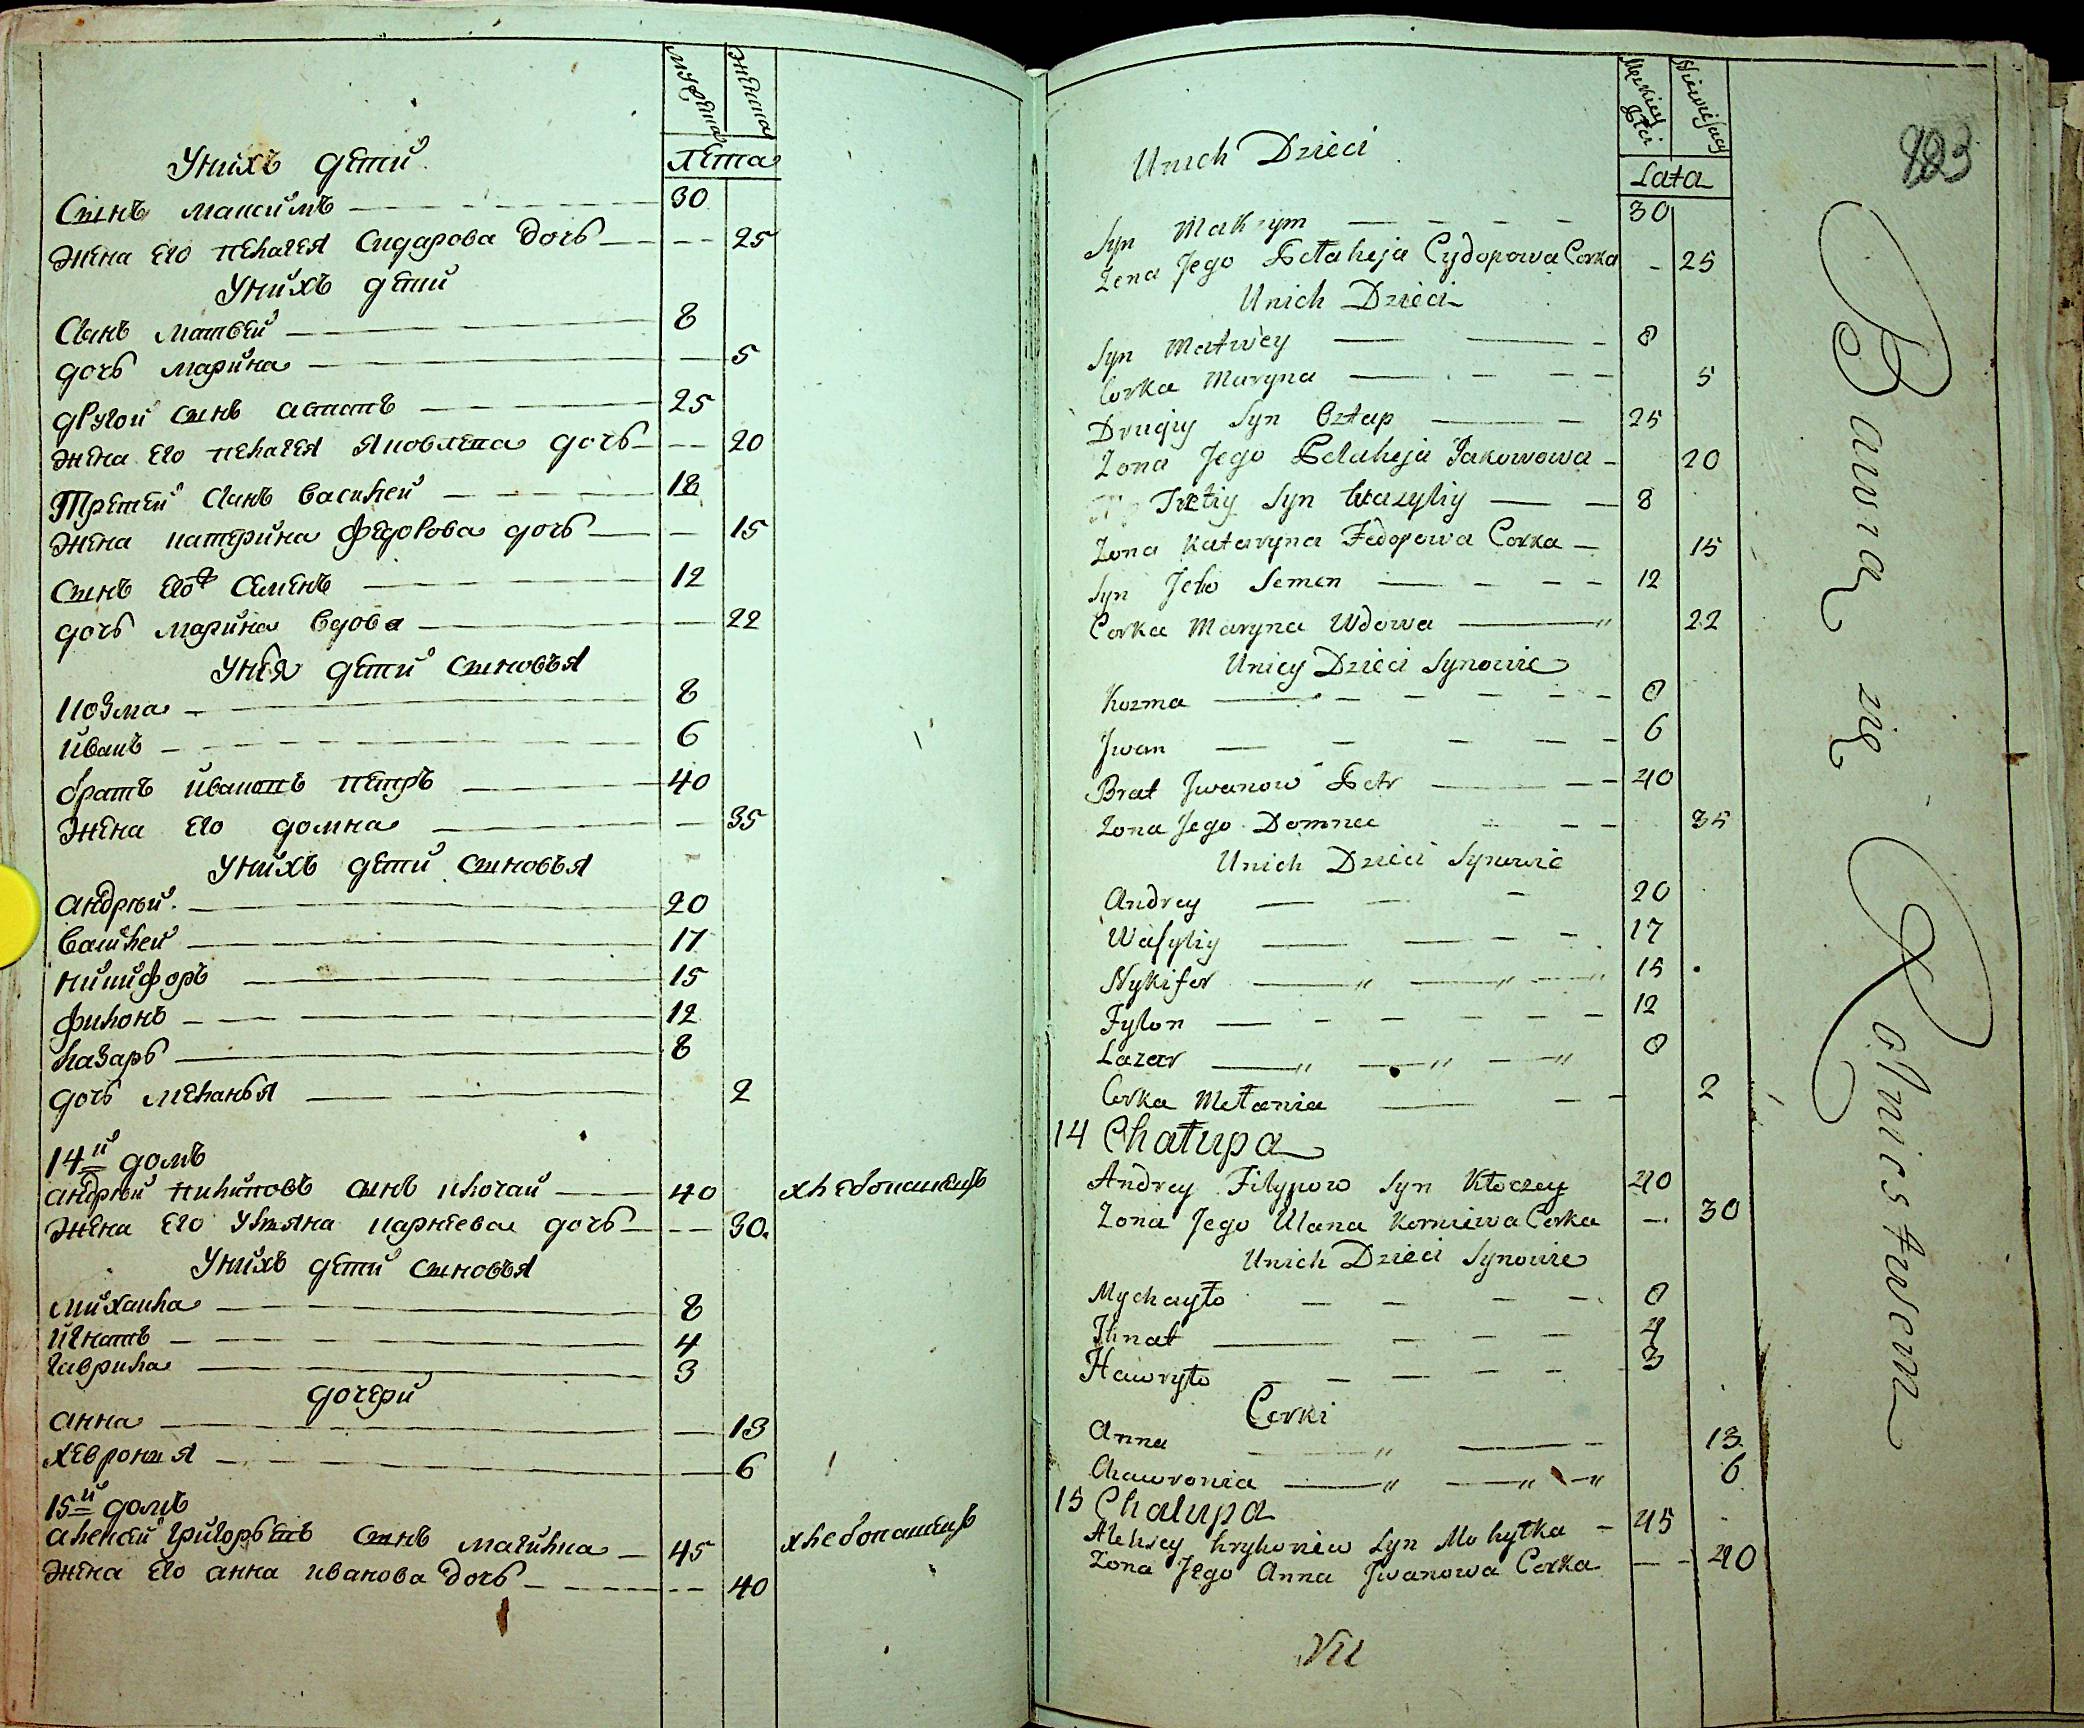 Мужеска
Женска
Лета
Унихъ дети
Сынъ максимъ 30
жена Его пелагея Сидарова дочь 25
Унихъ дети
Сынъ матвей 8
дочь марина 5
другой сынъ астапъ 25
жена Его пелагея яковлева дочь 20
Третей сынъ василей 18
жена катерина федорова дочь 15
сынъ Его Семенъ 12
дочь марина вдова 22
Унея дети сыновья
козма 8
иванъ 6
братъ ивановъ петръ 40
жена Его домна 35
Унихъ дети сыновья
андрей 20
василей 17
никифоръ 15
филонъ 12
лазарь 8
дочь меланья 2
14й домъ
андрей пилиповъ сынъ клочай 40 хлебопашецъ
жена Его Ульяна карнеева дочь 30
Унихъ дети сыновья
михаила 8
игнатъ 4
гаврила 3
дочери
анна 13
хеврония 6
15й домъ
алексей григорьевъ сынъ магилка 45 хлебопашецъ
жена Его анна иванова дочь 40
Męskiey Płci
Niewiesciey
Lata
Unich Dzieci
Syn Maksym 30
Żena Jego Pełaheja Cydorowa Corka 25
Unich Dzieci
Syn Matwiey 8
Corka Maryna 5
Drugiy Syn Oztap 25
Zona Jego Pelaheja Jakowowa 20
Tretiy Syn Wazyliy 8
Zona Kataryna Fedorowa Corka 15
Syn Jeho Semen 12
Corka Maryna Wdowa 22
Unicy Dzieci Synowie
Kozma 8
Jwan 6
Brat Jwanow Petr 40
Zona Jego Domnа 35
Unich Dzieci Synowie
Andrey 20
Wasyliy 17
Nykifor 15
Fylon 12
Lazar 8
Corka Mełania 2
14 Chałupa
Andrey Filypow Syn Kłoczey 40
Zona Jego Ulana Korniewa Corka 30
Unich Dzieci Synowie
Mychayło 8
Ihnat 4
Hawryło 3
Corki
Anna 13
Chawronia 6
15 Chalupa
Alexiey hryhoriew Syn Mohyłka 45
Zona Jego Anna Jwanowa Corka 40
VII
Bawią się Rolnictwem